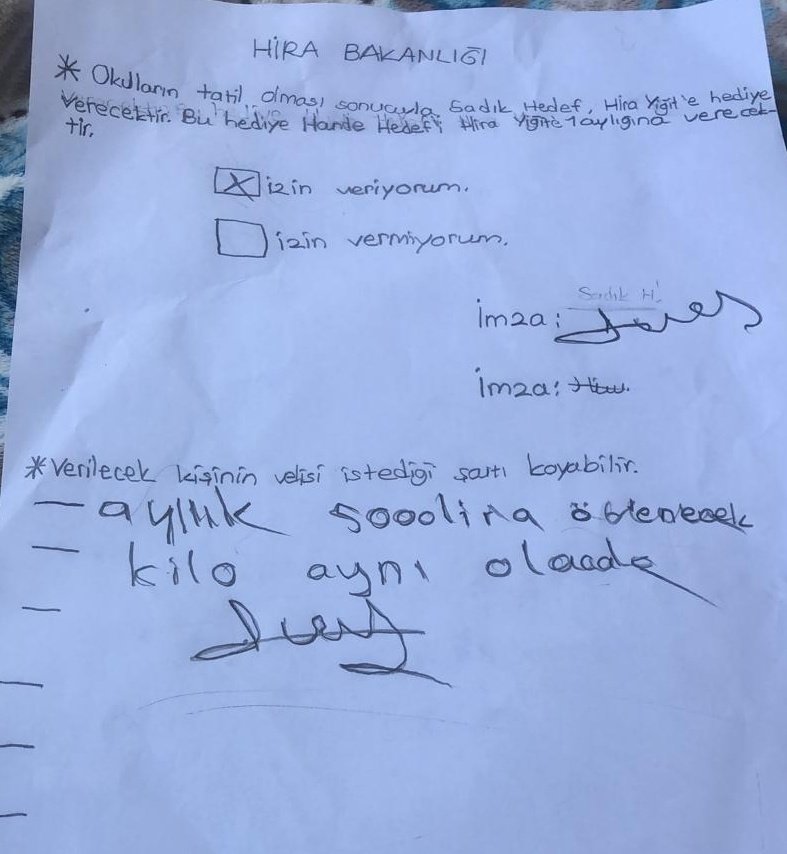 HİRA BAKANLIĞI
* Okulların tatil olması sonucuyla Sadık Hedef, Hira Yiğit'e hediye
verecektir. Bu hediye Hande Hedef'i Hira Yiğit'e 1 aylığına verecek-
tir.
X izin veriyorum.
izin vermiyorum.
Sadık H.
İmza:
İmza:
* Verilecek kişinin velisi istediği şartı koyabilir.
- aylık 5000 lira ödenecek
- kilo aynı olacak